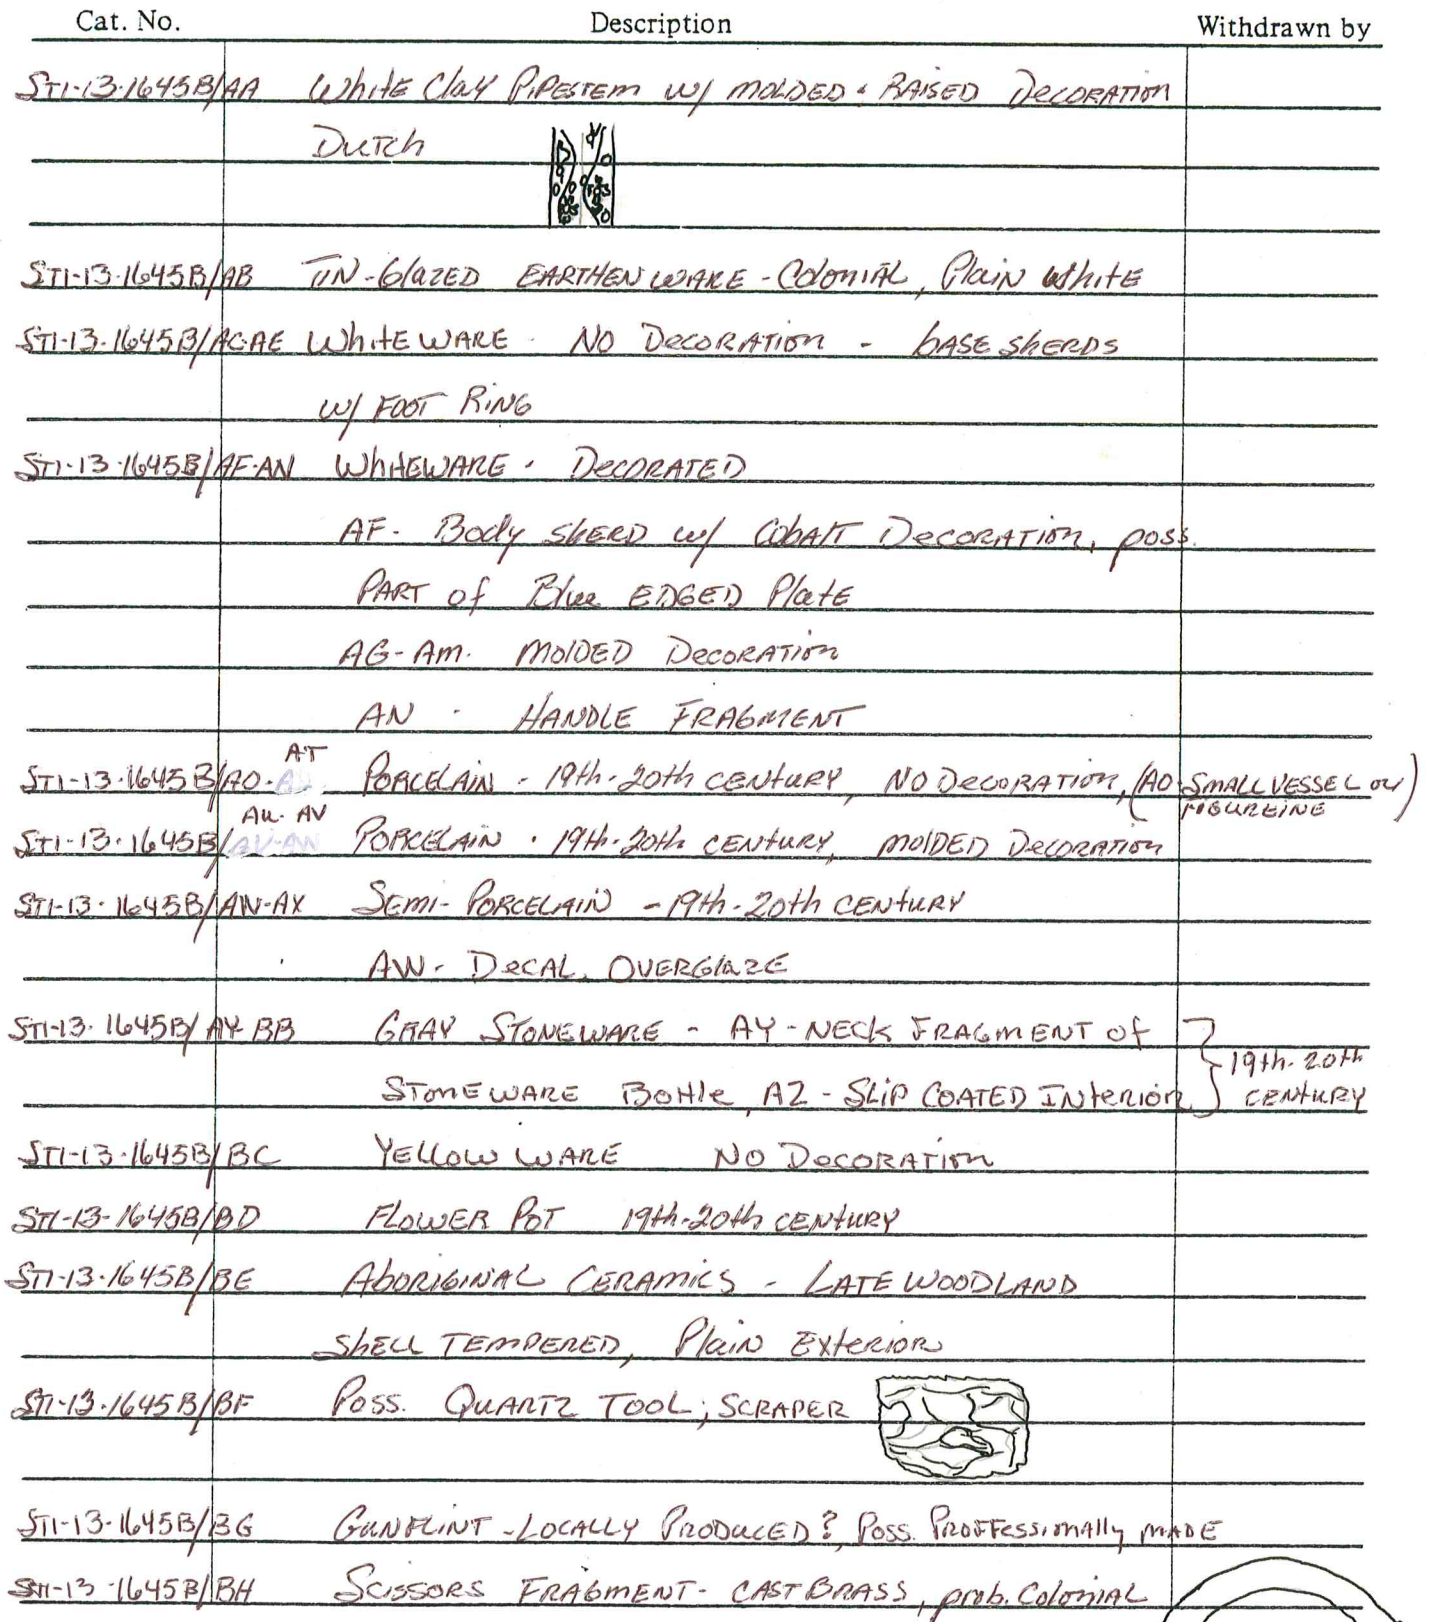 Cat. No. Description Withdrawn by
ST1-13-1645B/AA White Clay Pipestem w/ MOLDED & RAISED DECORATION
Dutch
ST1-13-1645B/AB TIN-Glazed EARTHENWARE - Colonial, Plain White
ST1-13-1645B/AC-AE WhiteWARE - NO DECORATION - base sherds
w/ FOOT RING
ST1-13-1645B/AF-AN WhiteWARE - DECORATED
AF- Body sherd w/ Cobalt Decoration, poss.
PART of Blue EDGED Plate
AG-AM. MOLDED Decoration
AN - HANDLE FRAGMENT
AT
ST1-13-1645B/AO- PORCELAIN - 19th-20th CENTURY, NO Decoration, (AO-SMALL VESSEL or
FIGUREINE)
AU-AV
ST1-13-1645B/AV-AW PORCELAIN - 19th-20th CENTURY, MOLDED Decoration
ST1-13-1645B/AW-AX SEMI-PORCELAIN - 19th-20th CENTURY
AW- Decal, OVERGlaze
ST1-13-1645B/AY-BB GRAY STONEWARE - AY-NECK FRAGMENT of
STONEWARE Bottle, AZ - SLIP COATED INterior } 19th-20th
CENTURY
ST1-13-1645B/BC YELLOW WARE NO DECORATION
ST1-13-1645B/BD FLOWER POT 19th-20th CENTURY
ST1-13-1645B/BE ABORIGINAL CERAMICS - LATE WOODLAND
Shell TEMPERED, Plain Exterior
ST1-13-1645B/BF Poss. QUARTZ TOOL; SCRAPER
ST1-13-1645B/BG GUNFLINT - LOCALLY PRODUCED?, Poss. PROFFESSIONALLY MADE
ST1-13-1645B/BH SCISSORS FRAGMENT- CAST BRASS, prob. Colonial